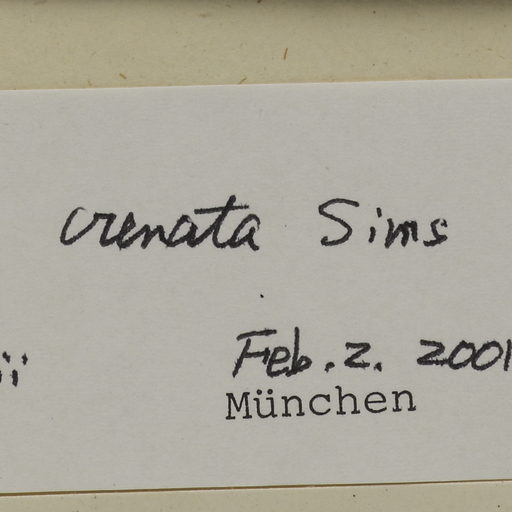 crenata Sims
ii Feb. 2. 2001
München